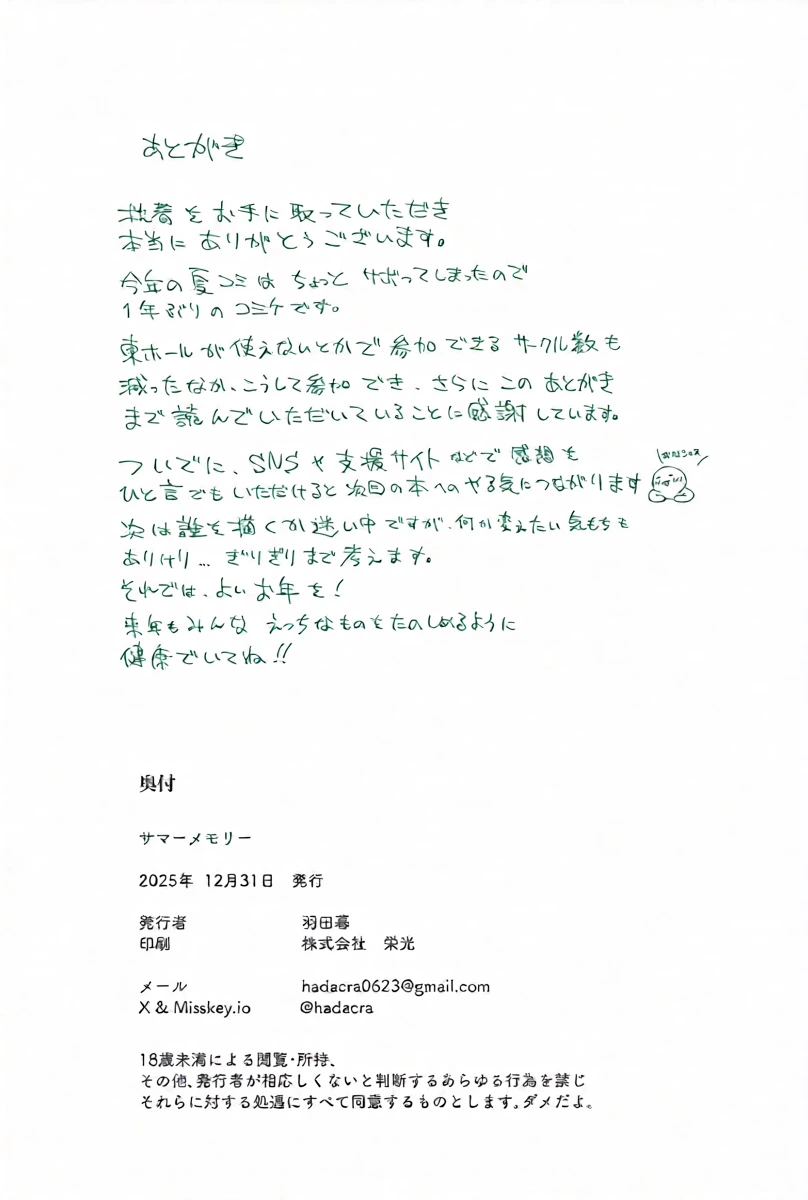 あとがき
拙著をお手に取っていただき
本当にありがとうございます。
今年の夏コミは ちょっと サボってしまったので
1年ぶりの コミケです。
東ホールが使えないとかで 参加できる サークル数も
減ったなか、こうして参加 でき、さらに この あとがき
まで 読んでいただいていることに感謝しています。
ついでに、SNSや支援サイトなどで 感想を
ひと言でもいただけると 次回の本へのやる気につながります
次は誰を描くか迷い中ですが、何か変えたい気もちも
ありけり… ぎりぎりまで考えます。
それでは、よいお年を!
来年もみんな えっちなものをたのしめるように
健康でいてね!!
奥付
サマーメモリー
2025年 12月31日 発行
発行者 羽田暮
印刷 株式会社 栄光
メール hadacra0623@gmail.com
X & Misskey.io @hadacra
18歳未満による閲覧・所持、
その他、発行者が相応しくないと判断するあらゆる行為を禁じ
それらに対する処遇にすべて同意するものとします。ダメだよ。